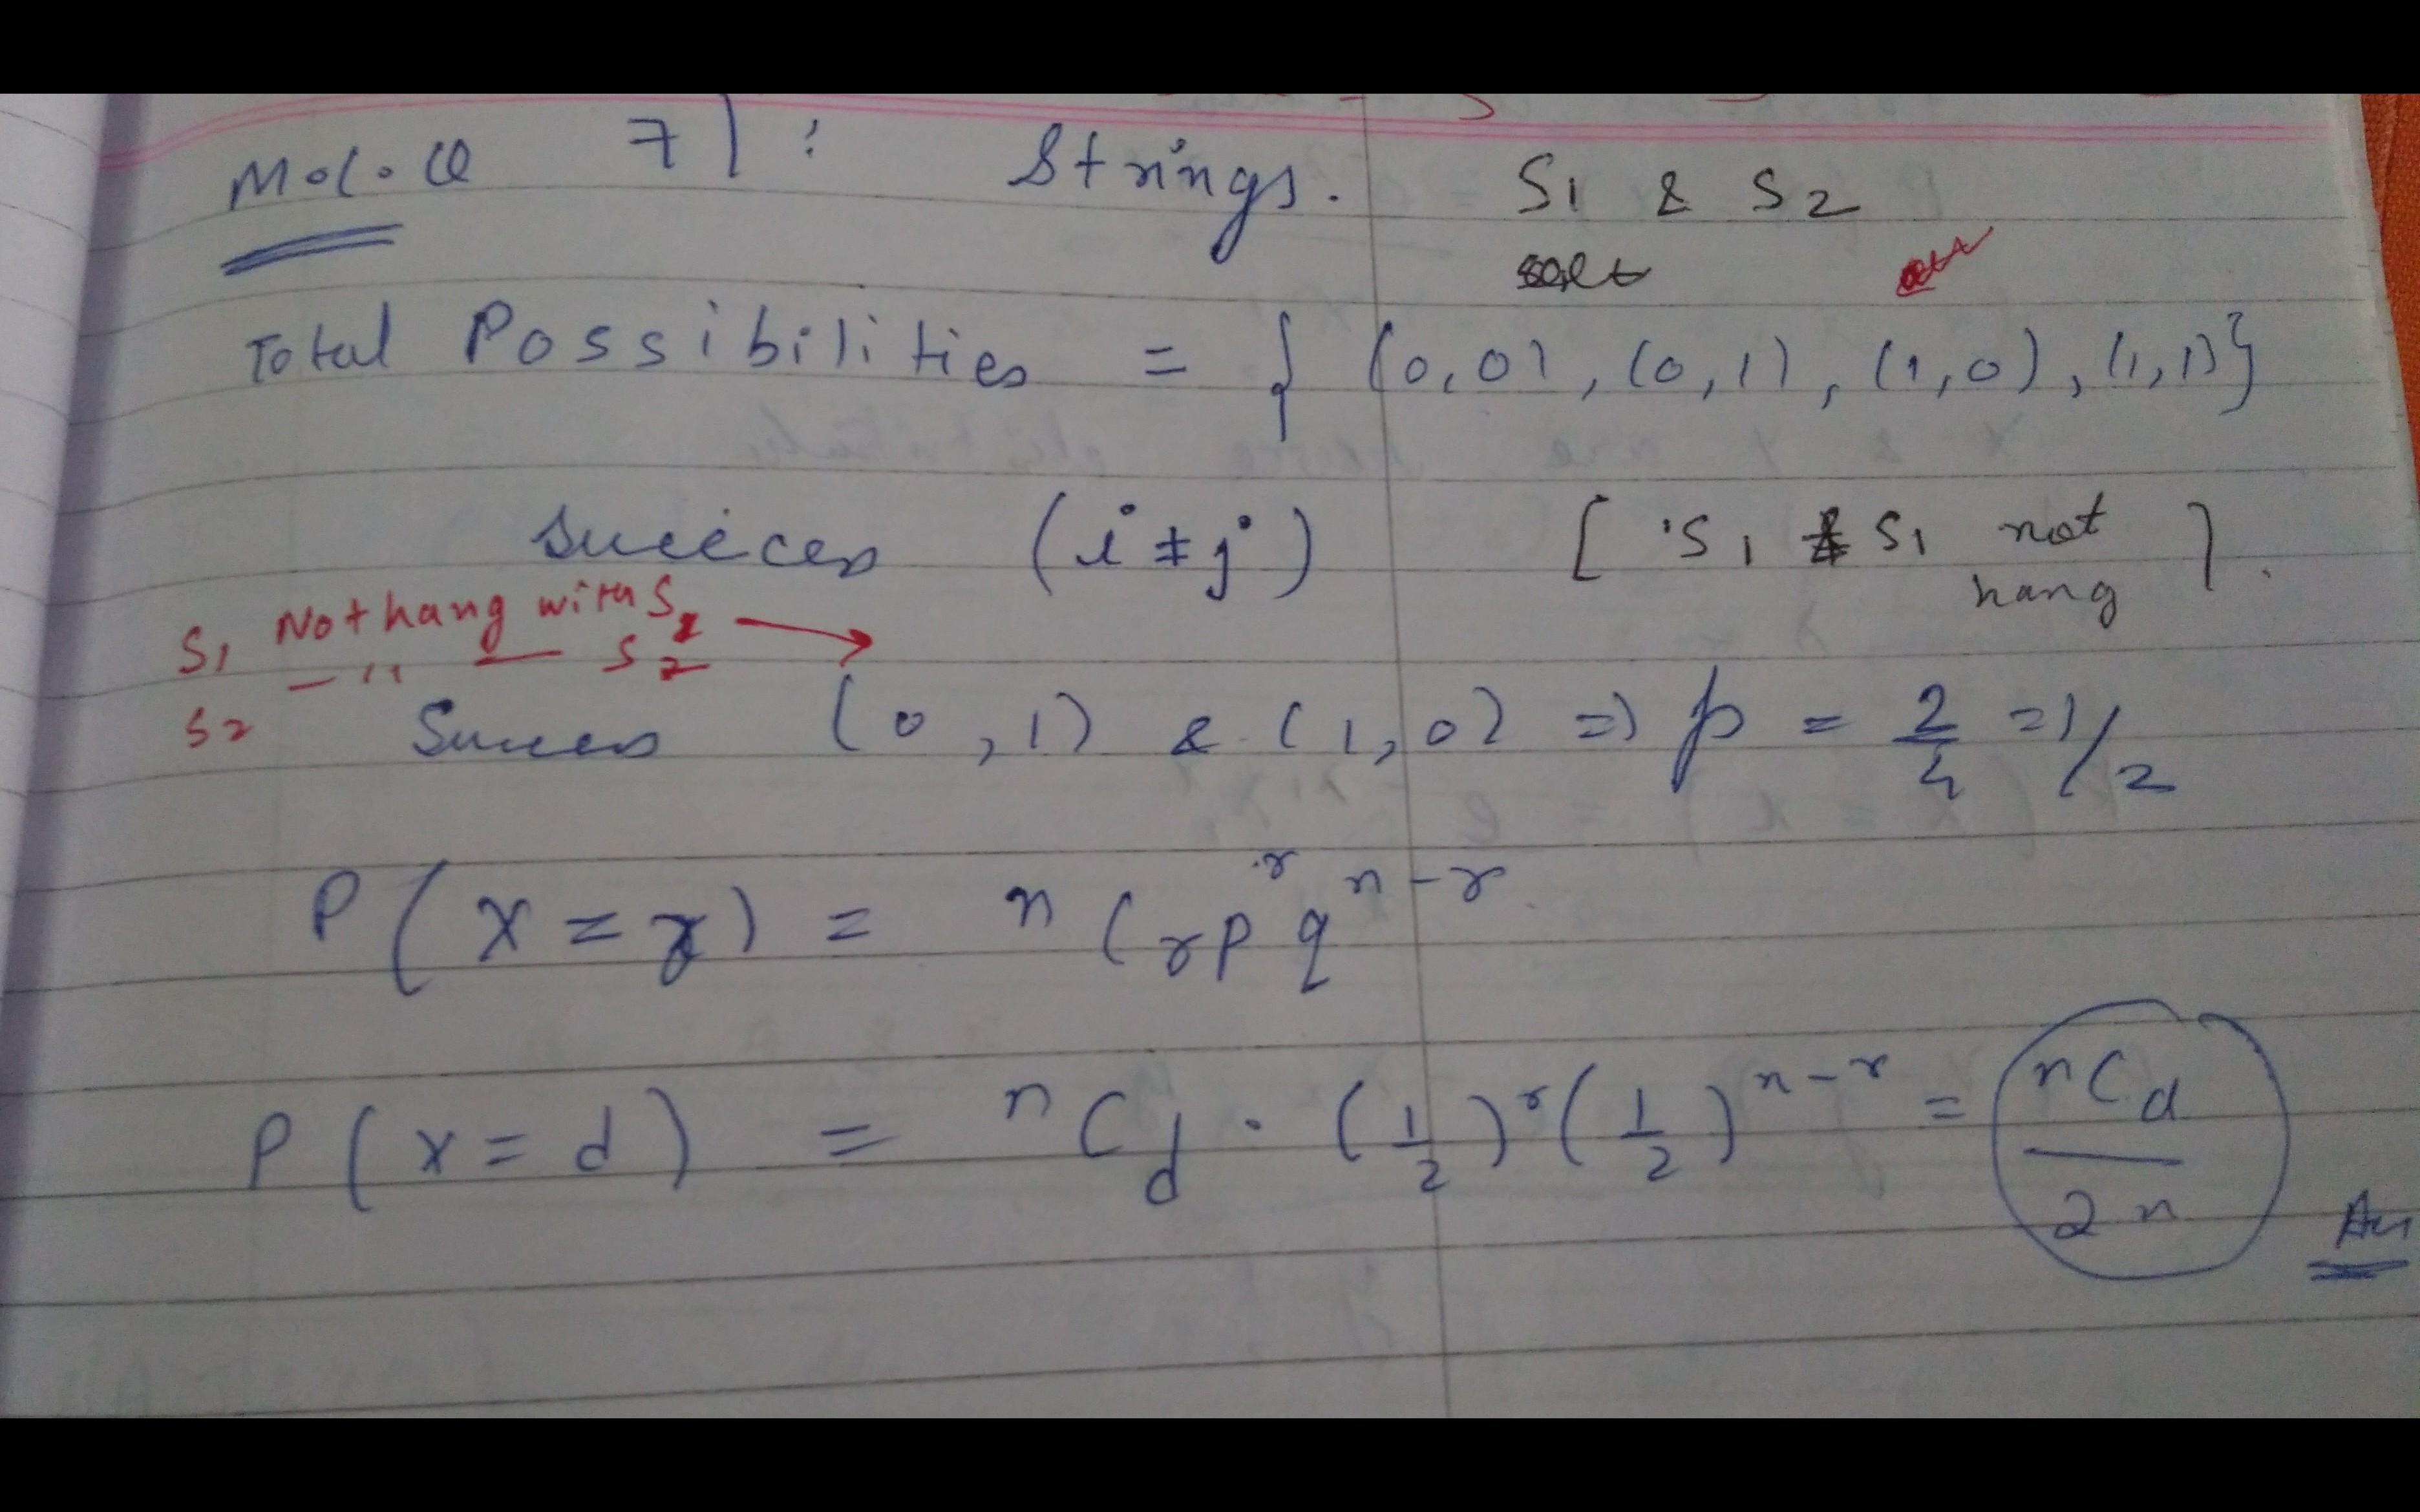 M.C.Q 71: Strings. S1 & S2
Total Possibilities = { (0,0), (0,1), (1,0), (1,1)}
success (i ≠ j) [ S1 & S1 not
hang ].
S1 Not hang with S2 →
S2 — '' — S2
Success (0,1) & (1,0) => p = 2/4 = 1/2
P(X = r) = nCr p^r q^n-r.
P(x = d) = nCd . (1/2)^r (1/2)^n-r = nCd / 2n